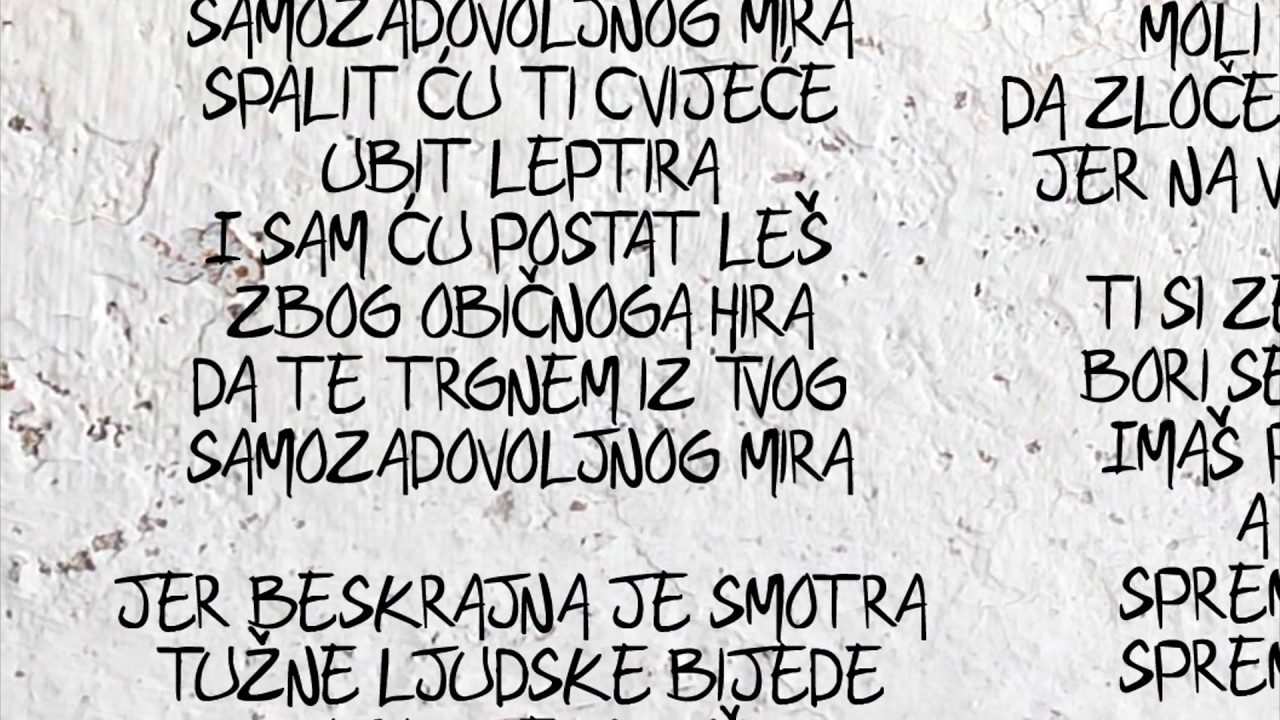 SAMOZADOVOLJNOG MIRA
SPALIT ĆU TI CVIJEĆE
UBIT LEPTIRA
I SAM ĆU POSTAT LEŠ
ZBOG OBIČNOGA HIRA
DA TE TRGNEM IZ TVOG
SAMOZADOVOLJNOG MIRA
JER BESKRAJNA JE SMOTRA
TUŽNE LJUDSKE BIJEDE
MOLI
DA ZLOČE
JER NA V
TI SI ZE
BORI SE
IMAŠ P
A
SPREM
SPREM